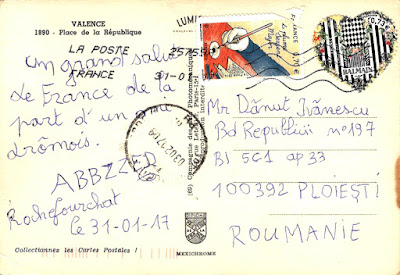 VALENCE
1890 - Place de la République
LA POSTE
25755A
FRANCE
31-01
Un grand salut
de France de la
part d'un
drômois.
ABBZZED
Rochefourchat
le 31-01-17
Collectionnez les Cartes Postales !
MEXICHROME
FRANCE
0,70 €
0,73 €
BALMAIN
Mr Dănuț Ivănescu
Bd Republicii n°197
Bl 5G1 ap 33
100392 PLOIEȘTI
ROUMANIE